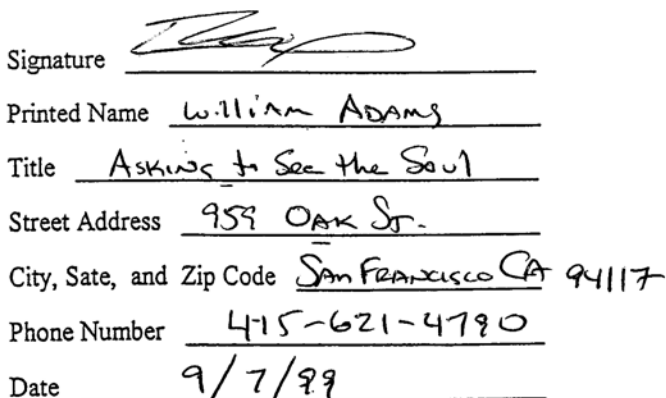 Signature
Printed Name William Adams
Title Asking to See the Soul
Street Address 959 Oak St.
City, Sate, and Zip Code San Francisco CA 94117
Phone Number 415-621-4790
Date 9/7/99